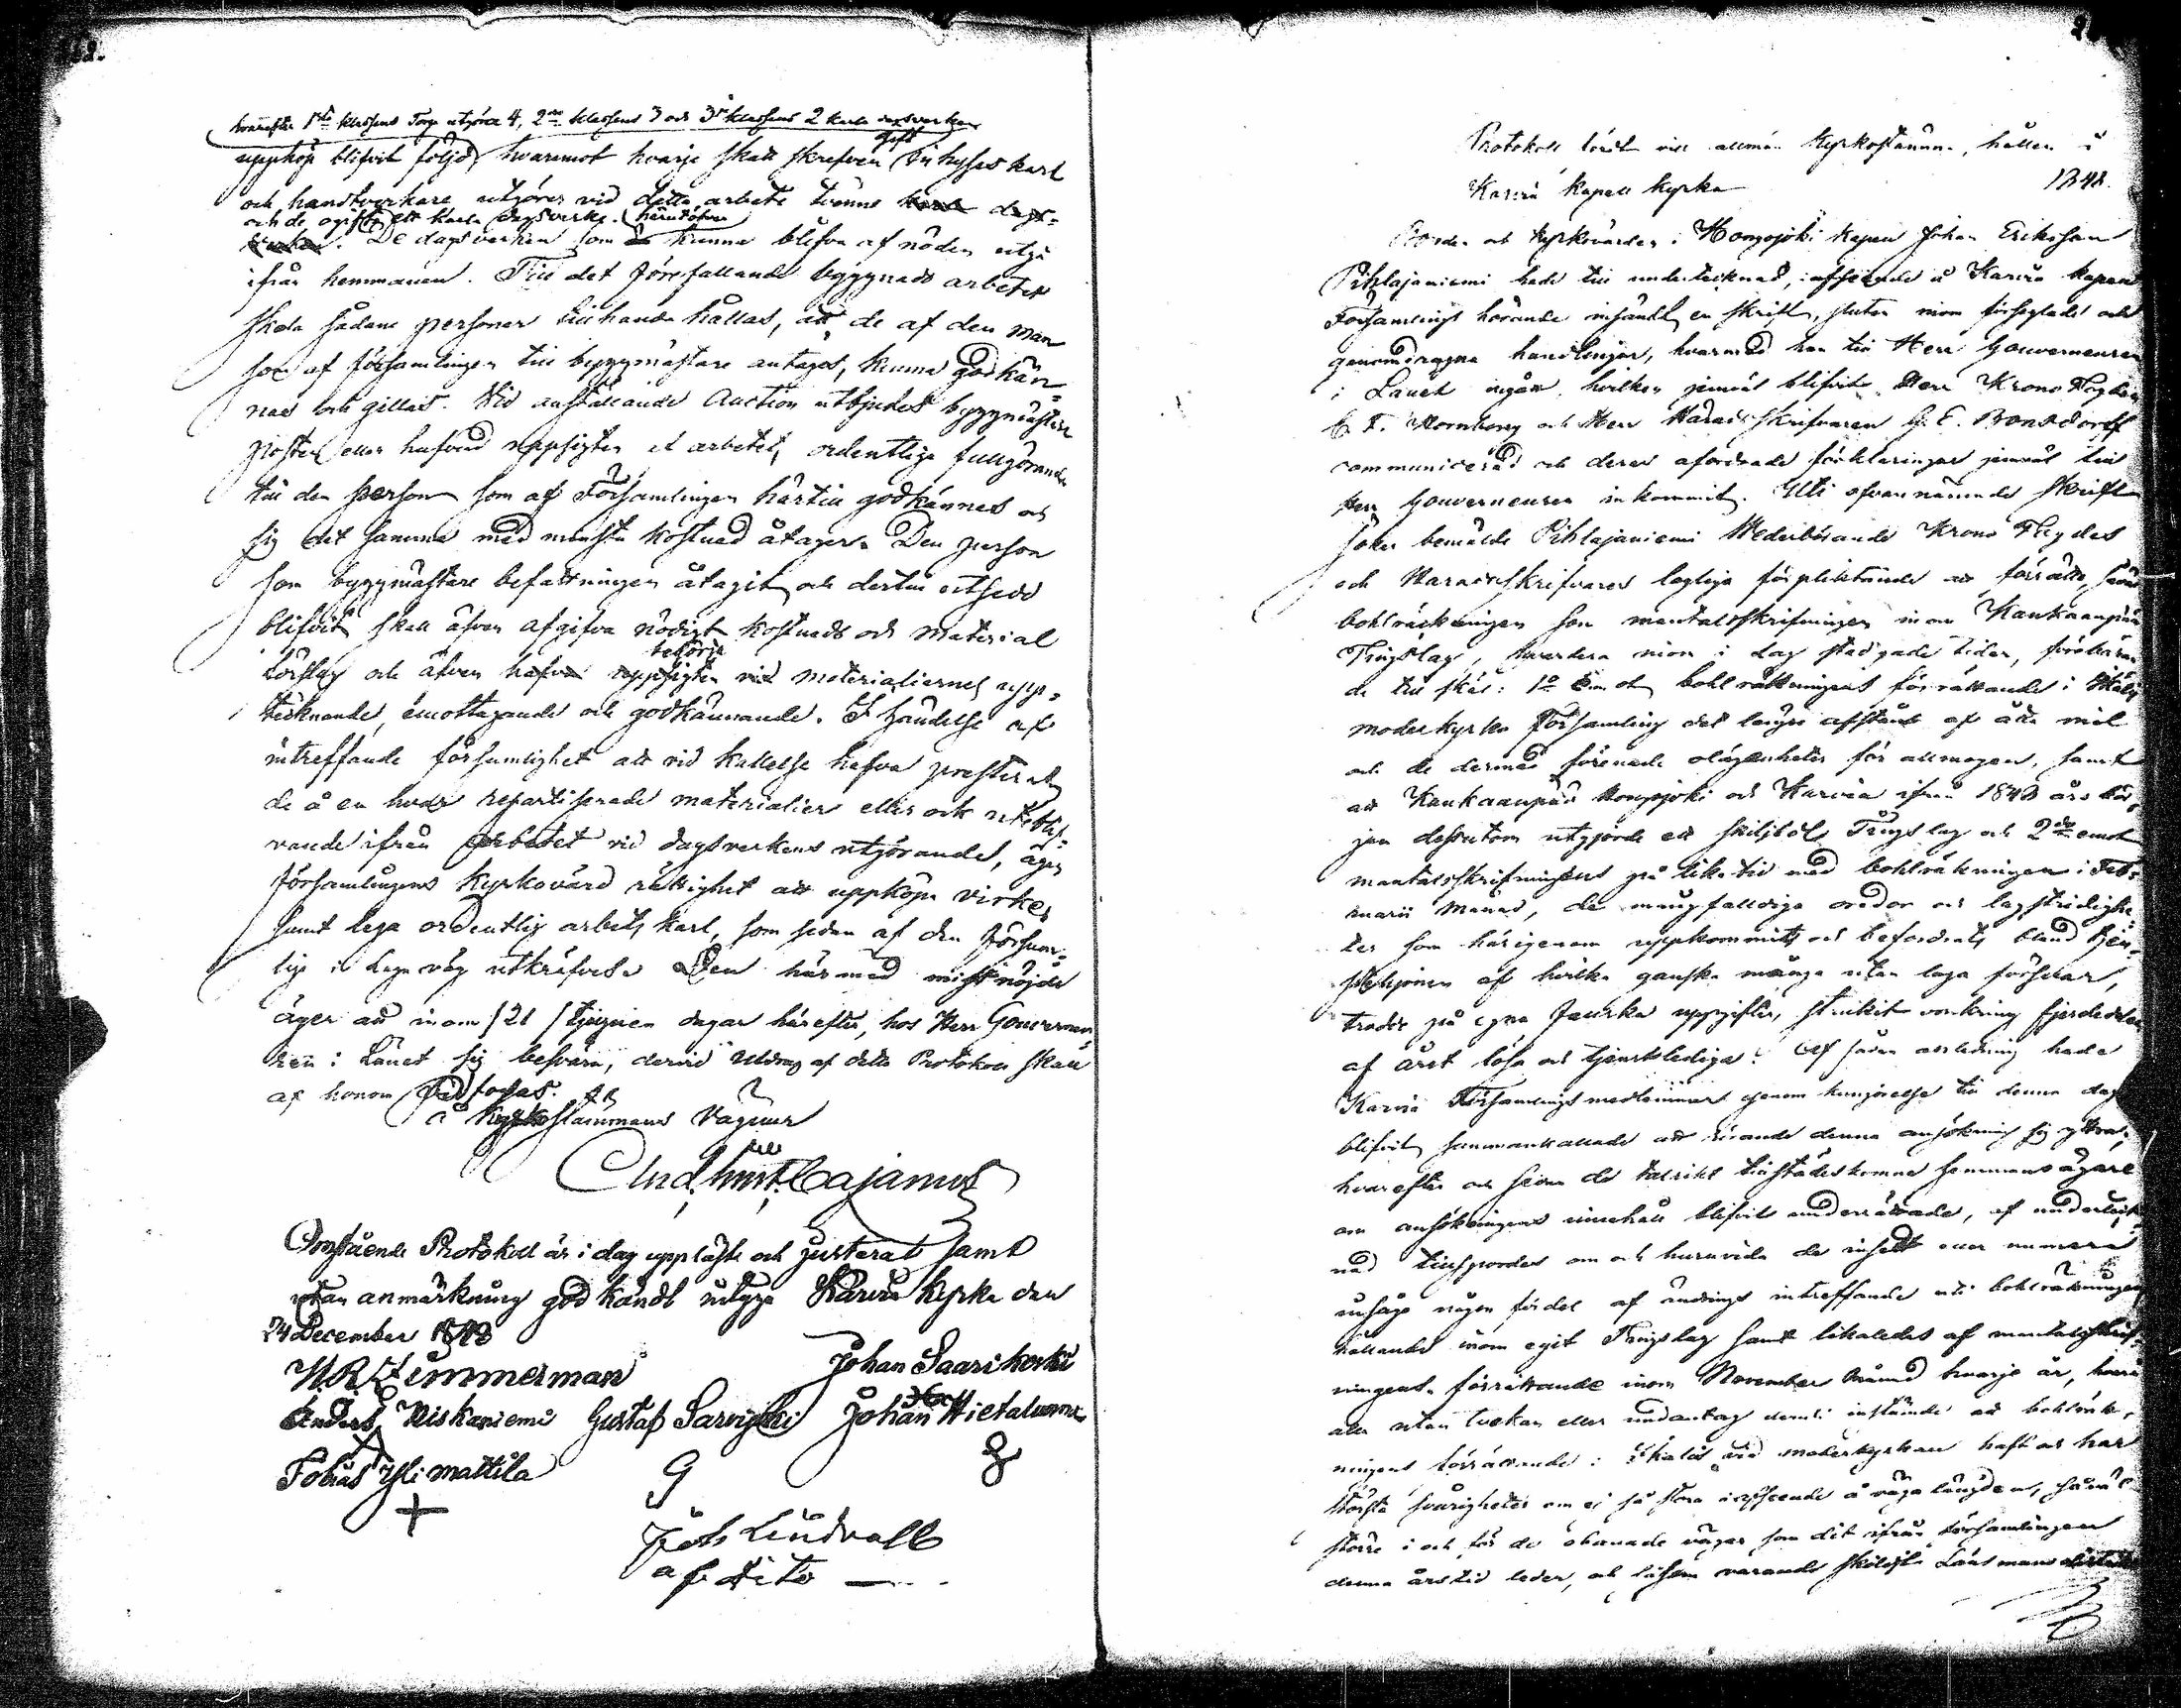 hvarefter 1sta klassens Torp utgöra 4, 2dra klassens 3 och 3e klassens 2 karls dagsverken
uppköp blifvit följd, hvaremot hvarje skatt skrefven gift Inhyses karl
och handtverkare utgörer vid detta arbete tvenne dags-
och de ogifte ett karls dagsverke. härutöfver
verken. De dagsverken som kunna blifva af nöden utgå
ifrån hemmanen. Till det förefallande byggnads arbetet
skola sådane personer tillhanda hållas, att de af den man
som af församlingen till byggmästare antages, kunna godkän-
nas och gillas. Vid anställande Auction utbjudes byggmästare
posten eller hafvud uppsigten et arbetets ordentliga fullgörande
till den person som af Församlingen härtill godkännes och
sig det samma med minsta kostnad åtager. Den person
som byggmästare befattningen åtagit och dertill utsedd
blifvit skall äfven afgifva nödigt kostnads och material
förslag och äfven besörja materialiernes upp-
tecknande, emottagande och godkännande. I händelse af
inträffande försumlighet att vid kallelse hafva presterat
de å en hvar repartiserade materialier eller och utebli-
vande ifrån arbetet vid dagsverkens utgörande, äger
församlingens Kyrkovärd rättighet att uppköpa virket
samt lega ordentlig arbets karl, som sedan af den försum-
lige i laga väg utkräfves. Den härmed missnöjde
äger att inom /21/ tjugueen dagar härefter, hos Herr Gouverneu-
ren i Länet sig besvära, dervid Utdrag af detta Protokoll skall
af honom vidfogas.
å Kyrkostämmans vägnar
And. Wilh. Cajanus
Omstående Protokoll är i dag uppläst och justerat samt
utan anmärkning godkändt intyga Karvia Kyrka den
24 December 1843
Zimmerman Johan Saarikoski
Anders Niskaniemi Gustaf Sarvijoki Johan Hietaluoma
Tobias Yli Mattila G
+
Joh Lindvall
af dito

Protokoll fördt vid allmän Kyrkostämma, hållen i
Karvia Kapell Kyrka 1848.
Bonden och Kyrkovärden i Hongojoki kapell Johan Eriksson
Pihlajaniemi hade till undertecknad, i afseende å Karvia kapell
Församlings hörande insändt en skrift, sluten inom förseglade och
genomdragna handlingar, hvarmed han till Herr Gouverneuren
i Länet ingått, hvilken jemväl blifvit Herr Krono Fogden
Hornborg och Herr Häradsskrifvaren G. E. Bonsdorff
communicerad och deras afordrade förklaringar jemväl till
Herr Gouverneuren inkommit. Uti ofvannämnde skrift
söker bemälde Pihlajaniemi Vederbörande Krono Fogdes
och Häradsskrifvares lagliga förpliktande att förrätta, såväl
bohlräckningen som mantalsskrifningen inom Kankaanpää
Tingslag, hvardera inom i lag stadgade tider, förebäran-
de till skäl: 1o Emot bohlräkningens förrättande i
moderkyrko Församling det långa afstånd af åtta mil
och de dermed förenade olägenheter för allmogen, samt
att Kankaanpää Hongojoki och Karvia ifrån 1843 års bör-
jan dessutom utgjorde ett skildt Tingslag och 2do emot
mantalsskrifningens på lika tid med bohlräkningen i Feb-
ruarii Månad, de mångfalldiga oredor och lagstridighe-
ter som härigenom uppkommit och befordrats bland tjen-
stehjonen af hvilka ganska många utan laga försvar,
trodde på egna falska uppgifter, strukit omkring fjerdedelen
af året lösa och tjenstlediga. Af sådan anledning hade
Karvia Församlings medlemmar genom kungörelse till denna dag
blifvit sammankallade att rörande denna ansökning sig yttra;
hvarefter och sedan de talrikt tillstädeskomne hemmansägare
om ansökningens innehåll blifvit underrättade, af underteck-
nad tillspordes om och huruvida de insett eller numera
insåge någon fördel af ändrings inträffande uti bohlräkningens
hållande inom eget Tingslag samt likaledes af mantalsskrif-
ningens förrättande inom November Månad hvarje år, hvarå
alla utan tvekan eller undantag deruti instämde att bohlräk-
ningens förrättande i vid moderkyrkan haft och har
största svårigheter om ej så stora i afseende å vägalängden, såväl
större i och för de obanade vägar som dit ifrån församlingen
denna årstid leder, och såsom varande skildt Länsmans distrikt